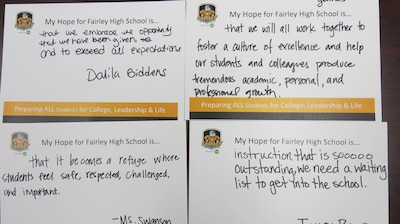 My Hope for Fairley High School is...
that we embrace the opportunity
that we have been given to
and to exceed all expectations
Dalila Biddens
Preparing ALL Students for College, Leadership & Life
My Hope for Fairley High School is...
that we will all work together to
foster a culture of excellence and help
our students and colleagues produce
tremendous academic, personal, and
professional growth.
Preparing ALL Students for College, Leadership & Life
My Hope for Fairley High School is...
that it becomes a refuge where
students feel safe, respected, challenged,
and important.
-Ms. Swanson
My Hope for Fairley High School is...
instruction that is sooooo
outstanding, we need a waiting
list to get into the school.